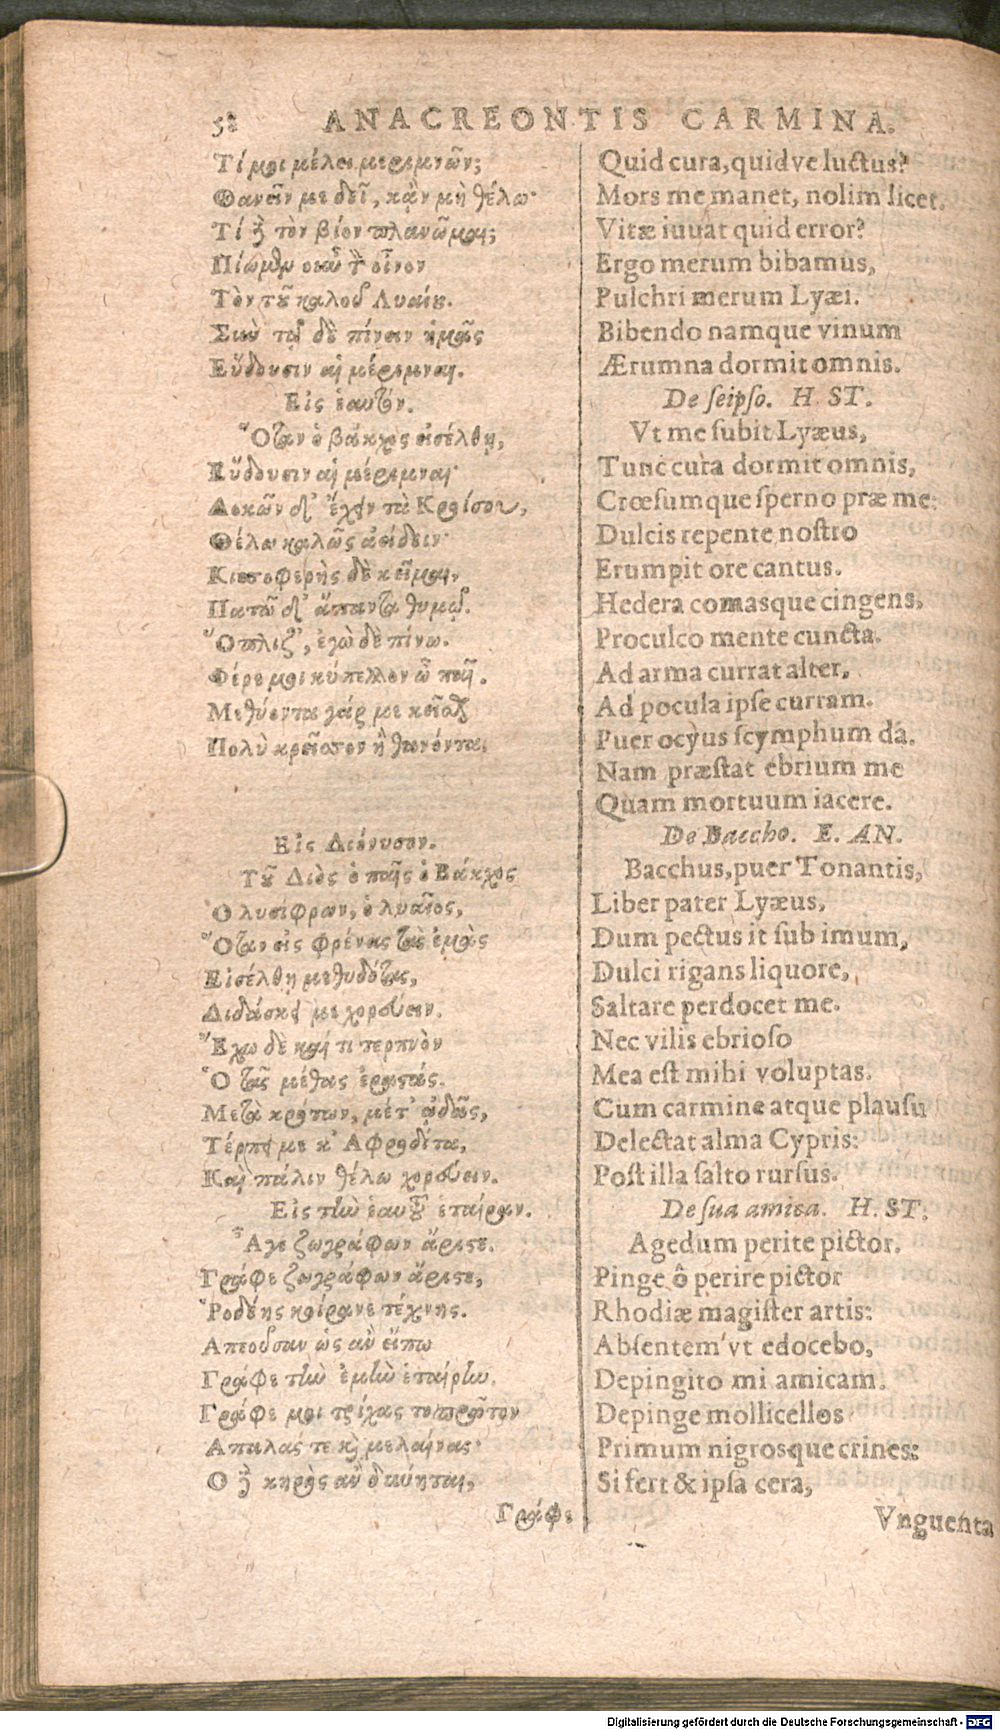 58 ANACREONTIS CARMINA.
Τί μοι μέλει μεριμνῶν;
Θανεῖν με δεῖ, κἂν μὴ θέλω·
Τί δὲ τὸν βίον πλανῶμαι;
Πίωμεν οὖν τὸν οἶνον
Τὸν τοῦ καλοῦ Λυαίου.
Σὺν τῷ δὲ πίνειν ἡμᾶς
Εὕδουσιν αἱ μέριμναι.
Εἰς ἑαυτόν.
Ὅταν ὁ βάκχος εἰσέλθῃ,
Εὕδουσιν αἱ μέριμναι·
Δοκῶν δ' ἔχειν τὰ Κροίσου,
Θέλω καλῶς ἀείδειν·
Κισσοφερὴς δὲ κεῖμαι,
Πατῶ δ' ἅπαντα θυμῷ.
Ὅπλιζ', ἐγὼ δὲ πίνω.
Φέρε μοι κύπελλον ὦ παῖ.
Μεθύοντα γάρ με κεῖσθαι
Πολὺ κρεῖσσον ἢ θανόντα.
Εἰς Διόνυσον.
Τοῦ Διὸς ὁ παῖς ὁ Βάκχος
Ὁ λυσίφρων, ὁ λυαῖος,
Ὅταν εἰς φρένας τὰς ἐμὰς
Εἰσέλθῃ μεθυδότας,
Διδάσκει με χορεύειν.
Ἔχω δὲ καί τι τερπνὸν
Ὁ τᾶς μέθας ἐραστάς.
Μετὰ κρότων, μέτ' ᾠδᾶς,
Τέρπει με κ' Αφροδίτα,
Καὶ πάλιν θέλω χορεύειν.
Εἰς τὴν ἑαυτοῦ ἑταίραν.
Ἄγε ζωγράφων ἄριστε.
Γράφε ζωγράφων ἄριστε,
Ῥοδέης κοίρανε τέχνης.
Απεοῦσαν ὡς ἂν εἴπω
Γράφε τὴν ἐμὴν ἑταίρην.
Γράφε μοι τρίχας τοπρῶτον
Απαλάς τε καὶ μελαίνας·
Ὁ δὲ κηρὸς ἂν δύνηται,
Γράφε
Quid cura, quidve luctus?
Mors me manet, nolim licet.
Vitæ iuvat quid error?
Ergo merum bibamus,
Pulchri merum Lyæi.
Bibendo namque vinum
Ærumna dormit omnis.
De seipso. H ST.
Vt me subit Lyæus,
Tunc cura dormit omnis,
Crœsumque sperno præ me:
Dulcis repente nostro
Erumpit ore cantus.
Hedera comasque cingens,
Proculco mente cuncta.
Ad arma currat alter,
Ad pocula ipse curram.
Puer ocyus scymphum da.
Nam præstat ebrium me
Quam mortuum iacere.
De Baccho. E. AN.
Bacchus, puer Tonantis,
Liber pater Lyæus,
Dum pectus it sub imum,
Dulci rigans liquore,
Saltare perdocet me.
Nec vilis ebrioso
Mea est mihi voluptas.
Cum carmine atque plausu
Delectat alma Cypris:
Post illa salto rursus.
De sua amica. H. ST.
Agedum perite pictor.
Pinge ô perire pictor
Rhodiæ magister artis:
Absentem vt edocebo,
Depingito mi amicam.
Depinge mollicellos
Primum nigrosque crines:
Si fert & ipsa cera,
Vnguenta
Digitalisierung gefördert durch die Deutsche Forschungsgemeinschaft - DFG